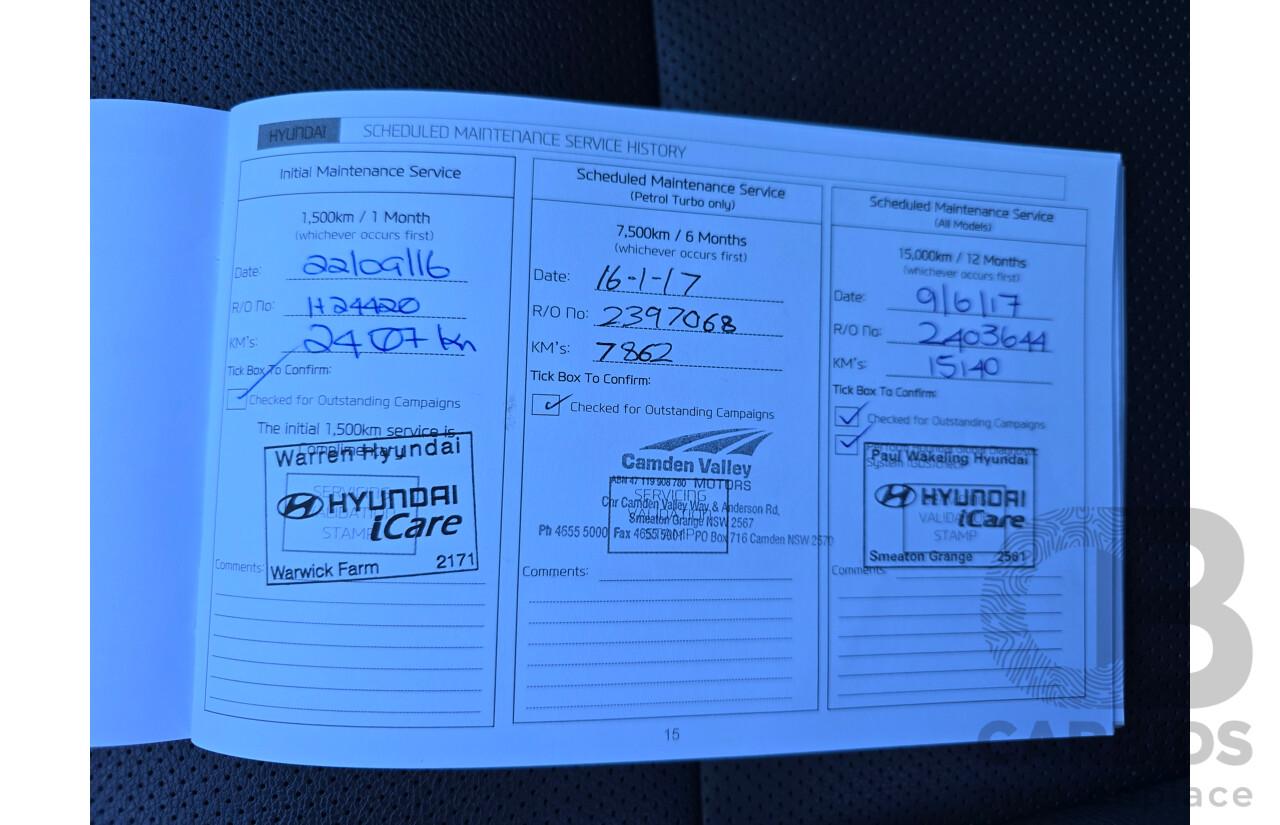 HYUNDAI SCHEDULED MAINTENANCE SERVICE HISTORY
Initial Maintenance Service
1,500km / 1 Month
(whichever occurs first)
Date: 22/09/16
R/O No: H24420
KM's: 2407 km
Tick Box To Confirm:
Checked for Outstanding Campaigns
The initial 1,500km service is
complimentary
Warren Hyundai
SERVICING
HYUNDAI
VALIDATION
iCare
STAMP
Warwick Farm 2171
Comments:
Scheduled Maintenance Service
(Petrol Turbo only)
7,500km / 6 Months
(whichever occurs first)
Date: 16-1-17
R/O No: 2397068
KM's: 7862
Tick Box To Confirm:
Checked for Outstanding Campaigns
Camden Valley
ABN 47 119 908 780 MOTORS
SERVICING
Cnr Camden Valley Way & Anderson Rd,
VALIDATION
Smeaton Grange NSW 2567
STAMP
Ph 4655 5000 Fax 4655 5001 PO Box 716 Camden NSW 2570
Comments:
Scheduled Maintenance Service
(All Models)
15,000km / 12 Months
(whichever occurs first)
Date: 9/6/17
R/O No: 2403644
KM's: 15140
Tick Box To Confirm:
Checked for Outstanding Campaigns
System
Paul Wakeling Hyundai
HYUNDAI
VALIDATION
iCare
STAMP
Smeaton Grange
Comments:
15